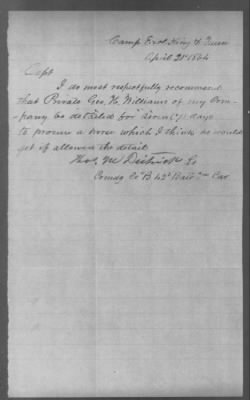 Camp
King & Queen
April 21st 1864
Capt
I do most respectfully recommend
that Private Geo. H. Williams of my Com-
pany be detailed for Seven (7) days
to procure a horse which I think he would
get if allowed the detail
Lt
Comdg Co "B" 42d Batt Va Cav